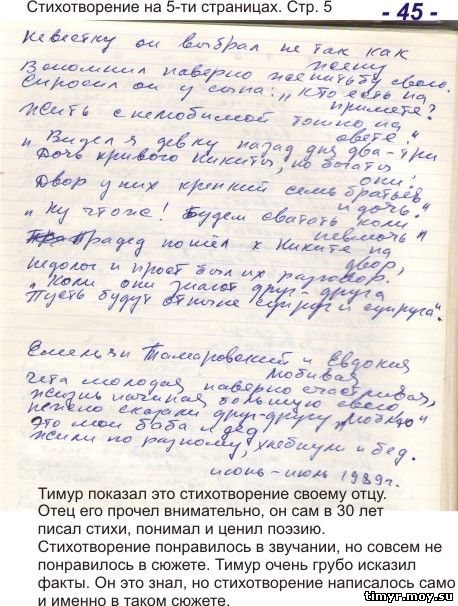 Стихотворение на 5-ти страницах. Стр. 5
- 45 -
невестку он выбрал не так как
жену
Вспомнил наверно женитьбу свою.
Спросил он у сына: „Кто есть на
примете?
Жить с нелюбимой тошно на
свете."
„ Видел я девку назад дня два-три
Дочь кривого Никиты, но богаты
они.
Двор у них крепкий семь братьев
и дочь."
„ Ну что же! Будем сватать коли
невмочь"
Прадед пошёл к Никите на
двор,
Недолог и прост был их разговор.
„Коли они знают друг-друга
Пусть будут отныне супруг и супруга".
Емельян Тамаровский и Евдокия
Любивая
чета молодая наверно счастливая,
Жизнь начиная большую свою
нежно сказали друг-другу „люблю"
Это мои баба и дед
Жили по разному, хлебнули и бед.
июнь-июль 1989г.
Тимур показал это стихотворение своему отцу.
Отец его прочел внимательно, он сам в 30 лет
писал стихи, понимал и ценил поэзию.
Стихотворение понравилось в звучании, но совсем не
понравилось в сюжете. Тимур очень грубо исказил
факты. Он это знал, но стихотворение написалось само
и именно в таком сюжете.
timyr.moy.su